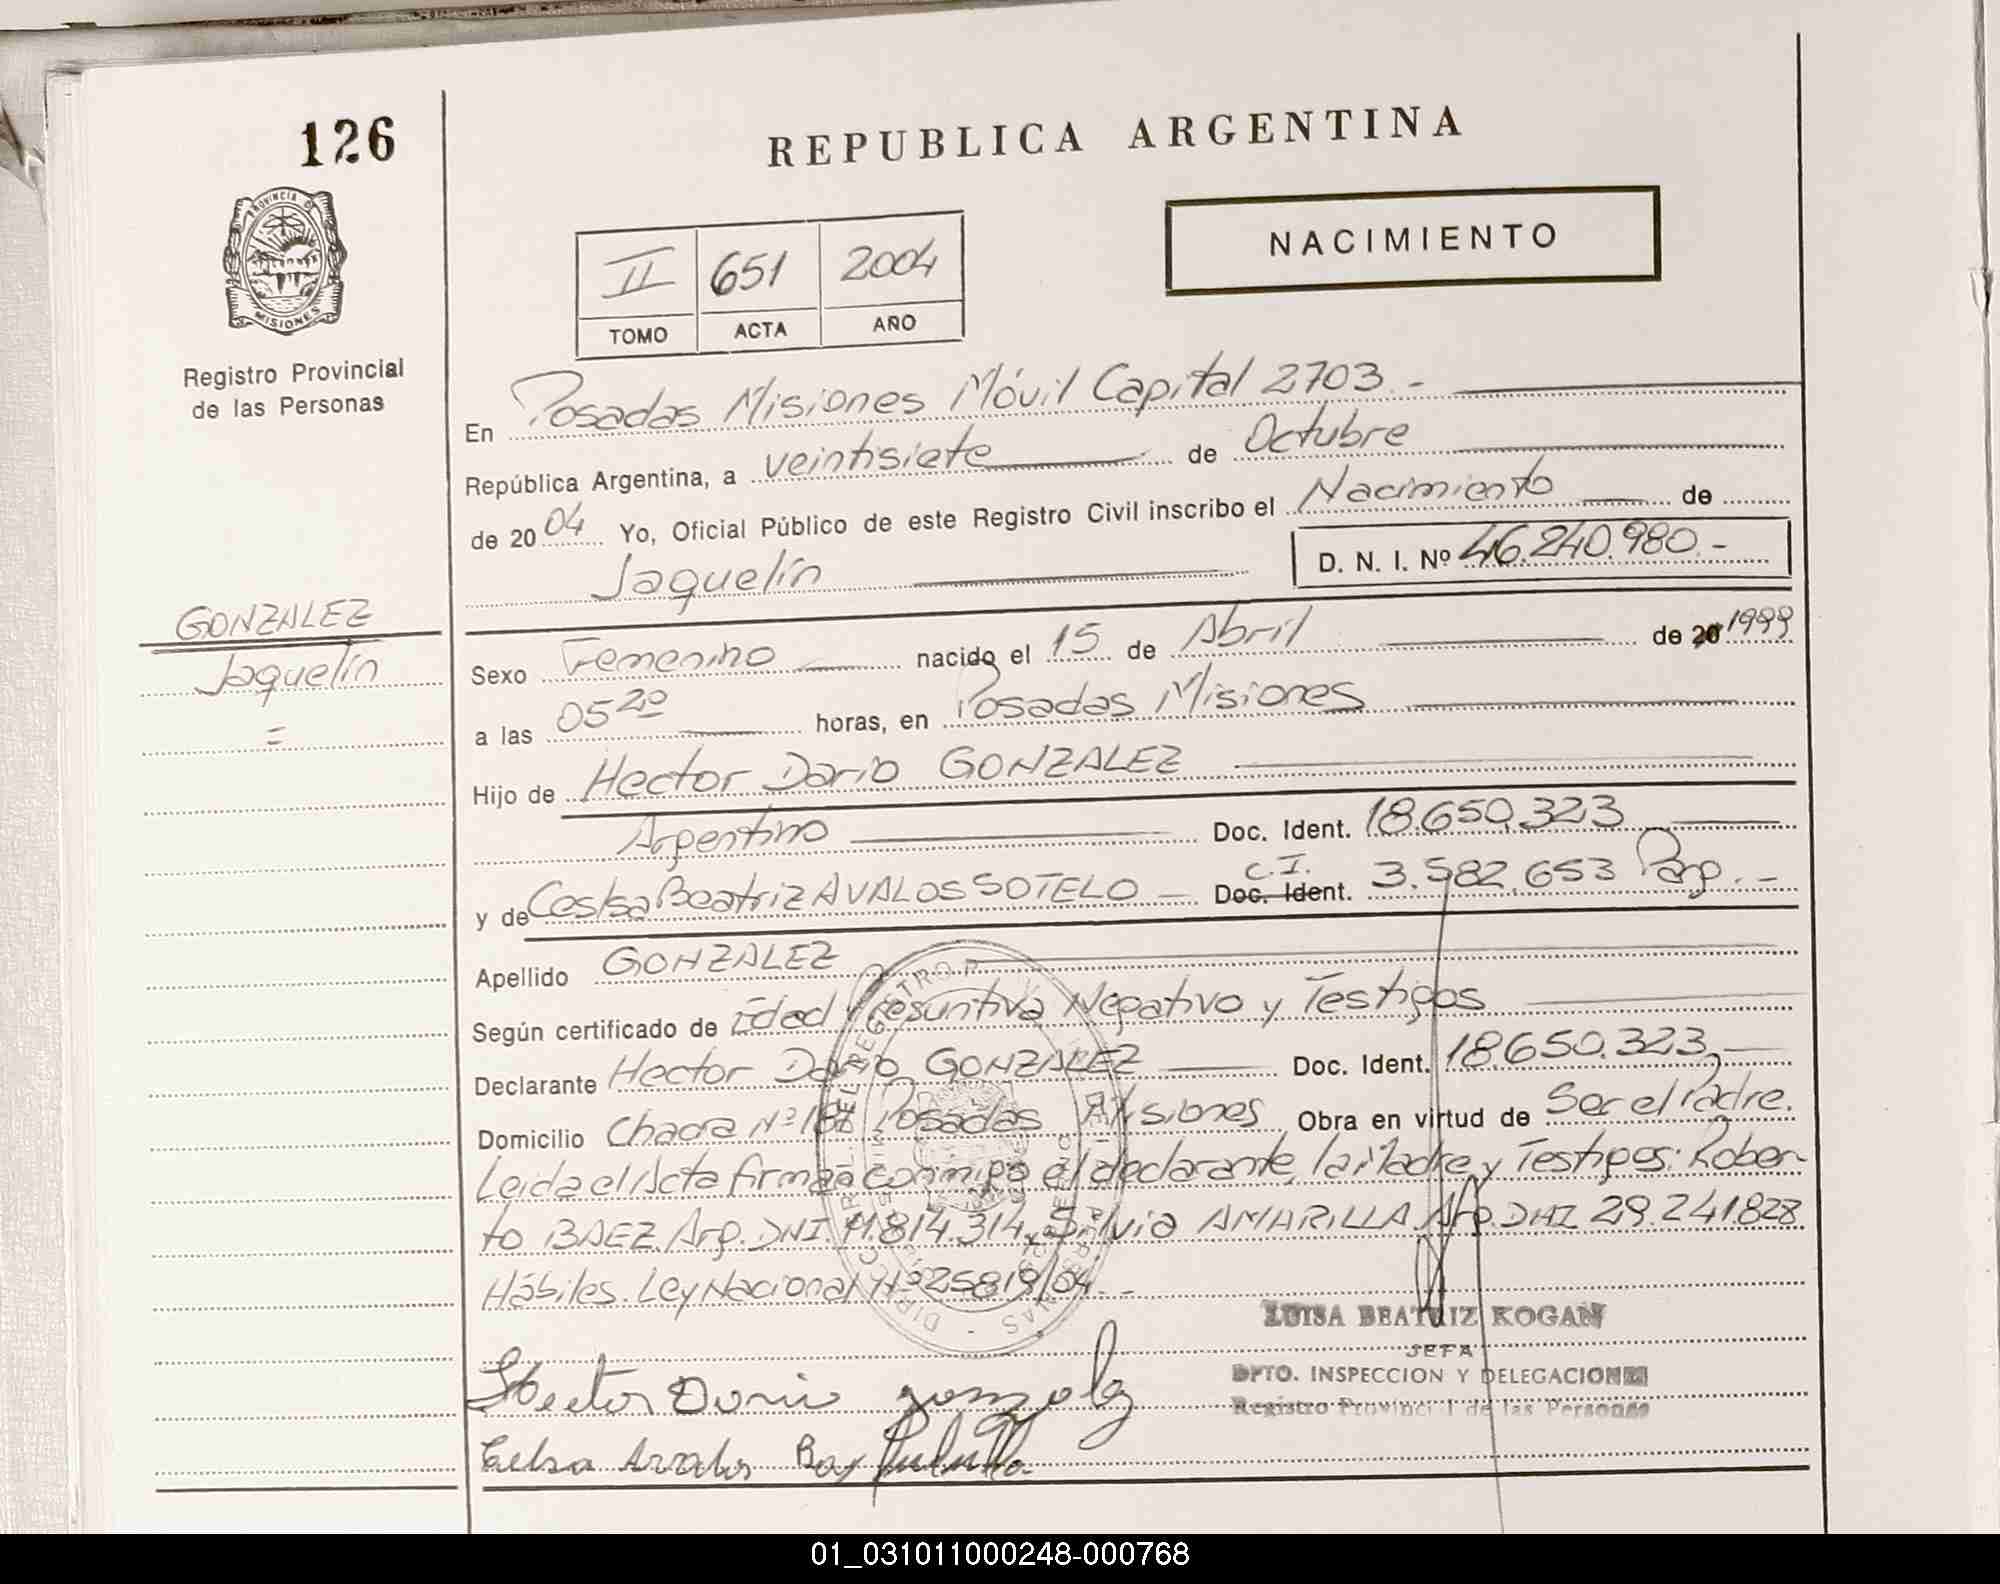 126
REPUBLICA ARGENTINA
PROVINCIA DE
MISIONES
Registro Provincial
de las Personas
NACIMIENTO
II 651 2004
TOMO ACTA AÑO
En Posadas Misiones Móvil Capital 2703.-
República Argentina, a veintisiete de Octubre
de 2004 Yo, Oficial Público de este Registro Civil inscribo el Nacimiento de
Jaquelín D. N. I. Nº 46.240.980.-
GONZALEZ
Jaquelín
=
Sexo Femenino nacido el 15 de Abril de 20 1999
a las 05 20 horas, en Posadas Misiones
Hijo de Hector Dario GONZALEZ
Argentino Doc. Ident. 18.650.323
y de Beatriz AVALOS SOTELO - C.I. Doc. Ident. 3.582.653 Parg.-
Apellido GONZALEZ
Según certificado de Edad Presuntiva Negativo y Testigos
Declarante Hector Dario GONZALEZ Doc. Ident. 18.650.323,
Domicilio Chacra Nº Posadas Misiones Obra en virtud de Ser el Padre.
Leida el Acta firman conmigo el declarante, la Madre y Testigos: Rober-
to BAEZ. Arg. DNI. 11.814.314 y Silvia AMARILLA. Arg. DNI 29.241.828
Hábiles. Ley Nacional Nº 25819/04.-
LUISA BEATRIZ KOGAN
JEFA
DPTO. INSPECCION Y DELEGACIONES
Registro Provincial de las Personas
Hector Dario gonzalez
01_031011000248-000768